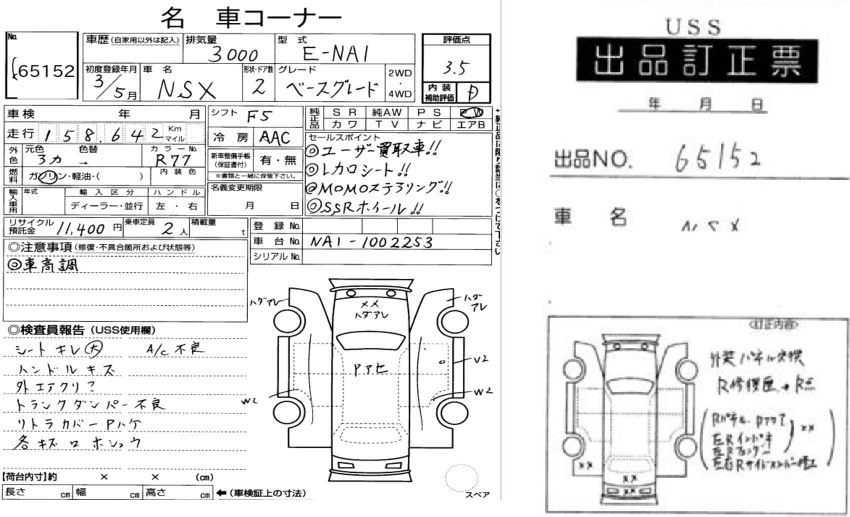 名 車コーナー
No.
65152
車歴 (自家用以外は記入)
排気量
3000
型 式
E-NA1
評価点
3.5
初度登録年月
3/5月
車 名
NSX
形状・ドア数
2
グレード
ベースグレード
2WD
・
4WD
内 装
補助評価
D
車検 年 月
シフト F5
純正品
S R 純AW P S P W
カ ワ T V ナ ビ エアB
走行 158,642 Km マイル
冷 房 AAC
セールスポイント
◎ユーザー買取車!!
外色
元色 色替
3カ →
カラー No.
R77
新車整備手帳
(保証書付)
有・無
※書類と一緒に保管下さい。
◎レカロシート!!
燃料
ガソリン・軽油・( )
内 装 色
名義変更期限
月 日
◎MOMOステアリング!!
輸入車用
年式
輸 入 区 分
ハ ン ド ル
ディーラー・並行
左 ・ 右
◎SSRホイール!!
リサイクル
預託金
11,400 円
乗車定員
2人
積載量
t
登 録 No.
車 台 No. NA1-1002253
シリアル No.
◎注意事項 (修復・不具合箇所および状態等)
◎車高調
◎検査員報告 (USS使用欄)
シート キレ 大 A/C 不良
ハンドル キズ
外エアクリ?
トランクダンパー 不良
リトラカバー Pハゲ
各キズ
××
ハダアレ
ハダアレ
ハダアレ
Pアセ
V2
W2
W2
【荷台内寸】約 × × (cm)
長さ cm 幅 cm 高さ cm
←(車検証上の寸法)
スペア
USS
出品訂正票
年 月 日
出品NO. 65152
車 名 NSX
<訂正内容>
外装パネル交換
R修復歴→R点
××
××
××